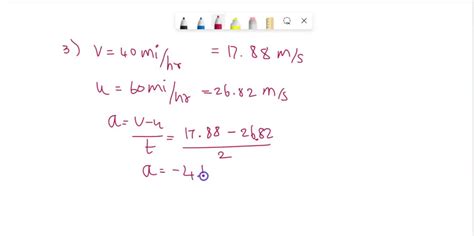 3) V = 40 mi/hr = 17.88 m/s
u = 60 mi/hr = 26.82 m/s
a = v-u/t = 17.88 - 26.82/2
a = -4.